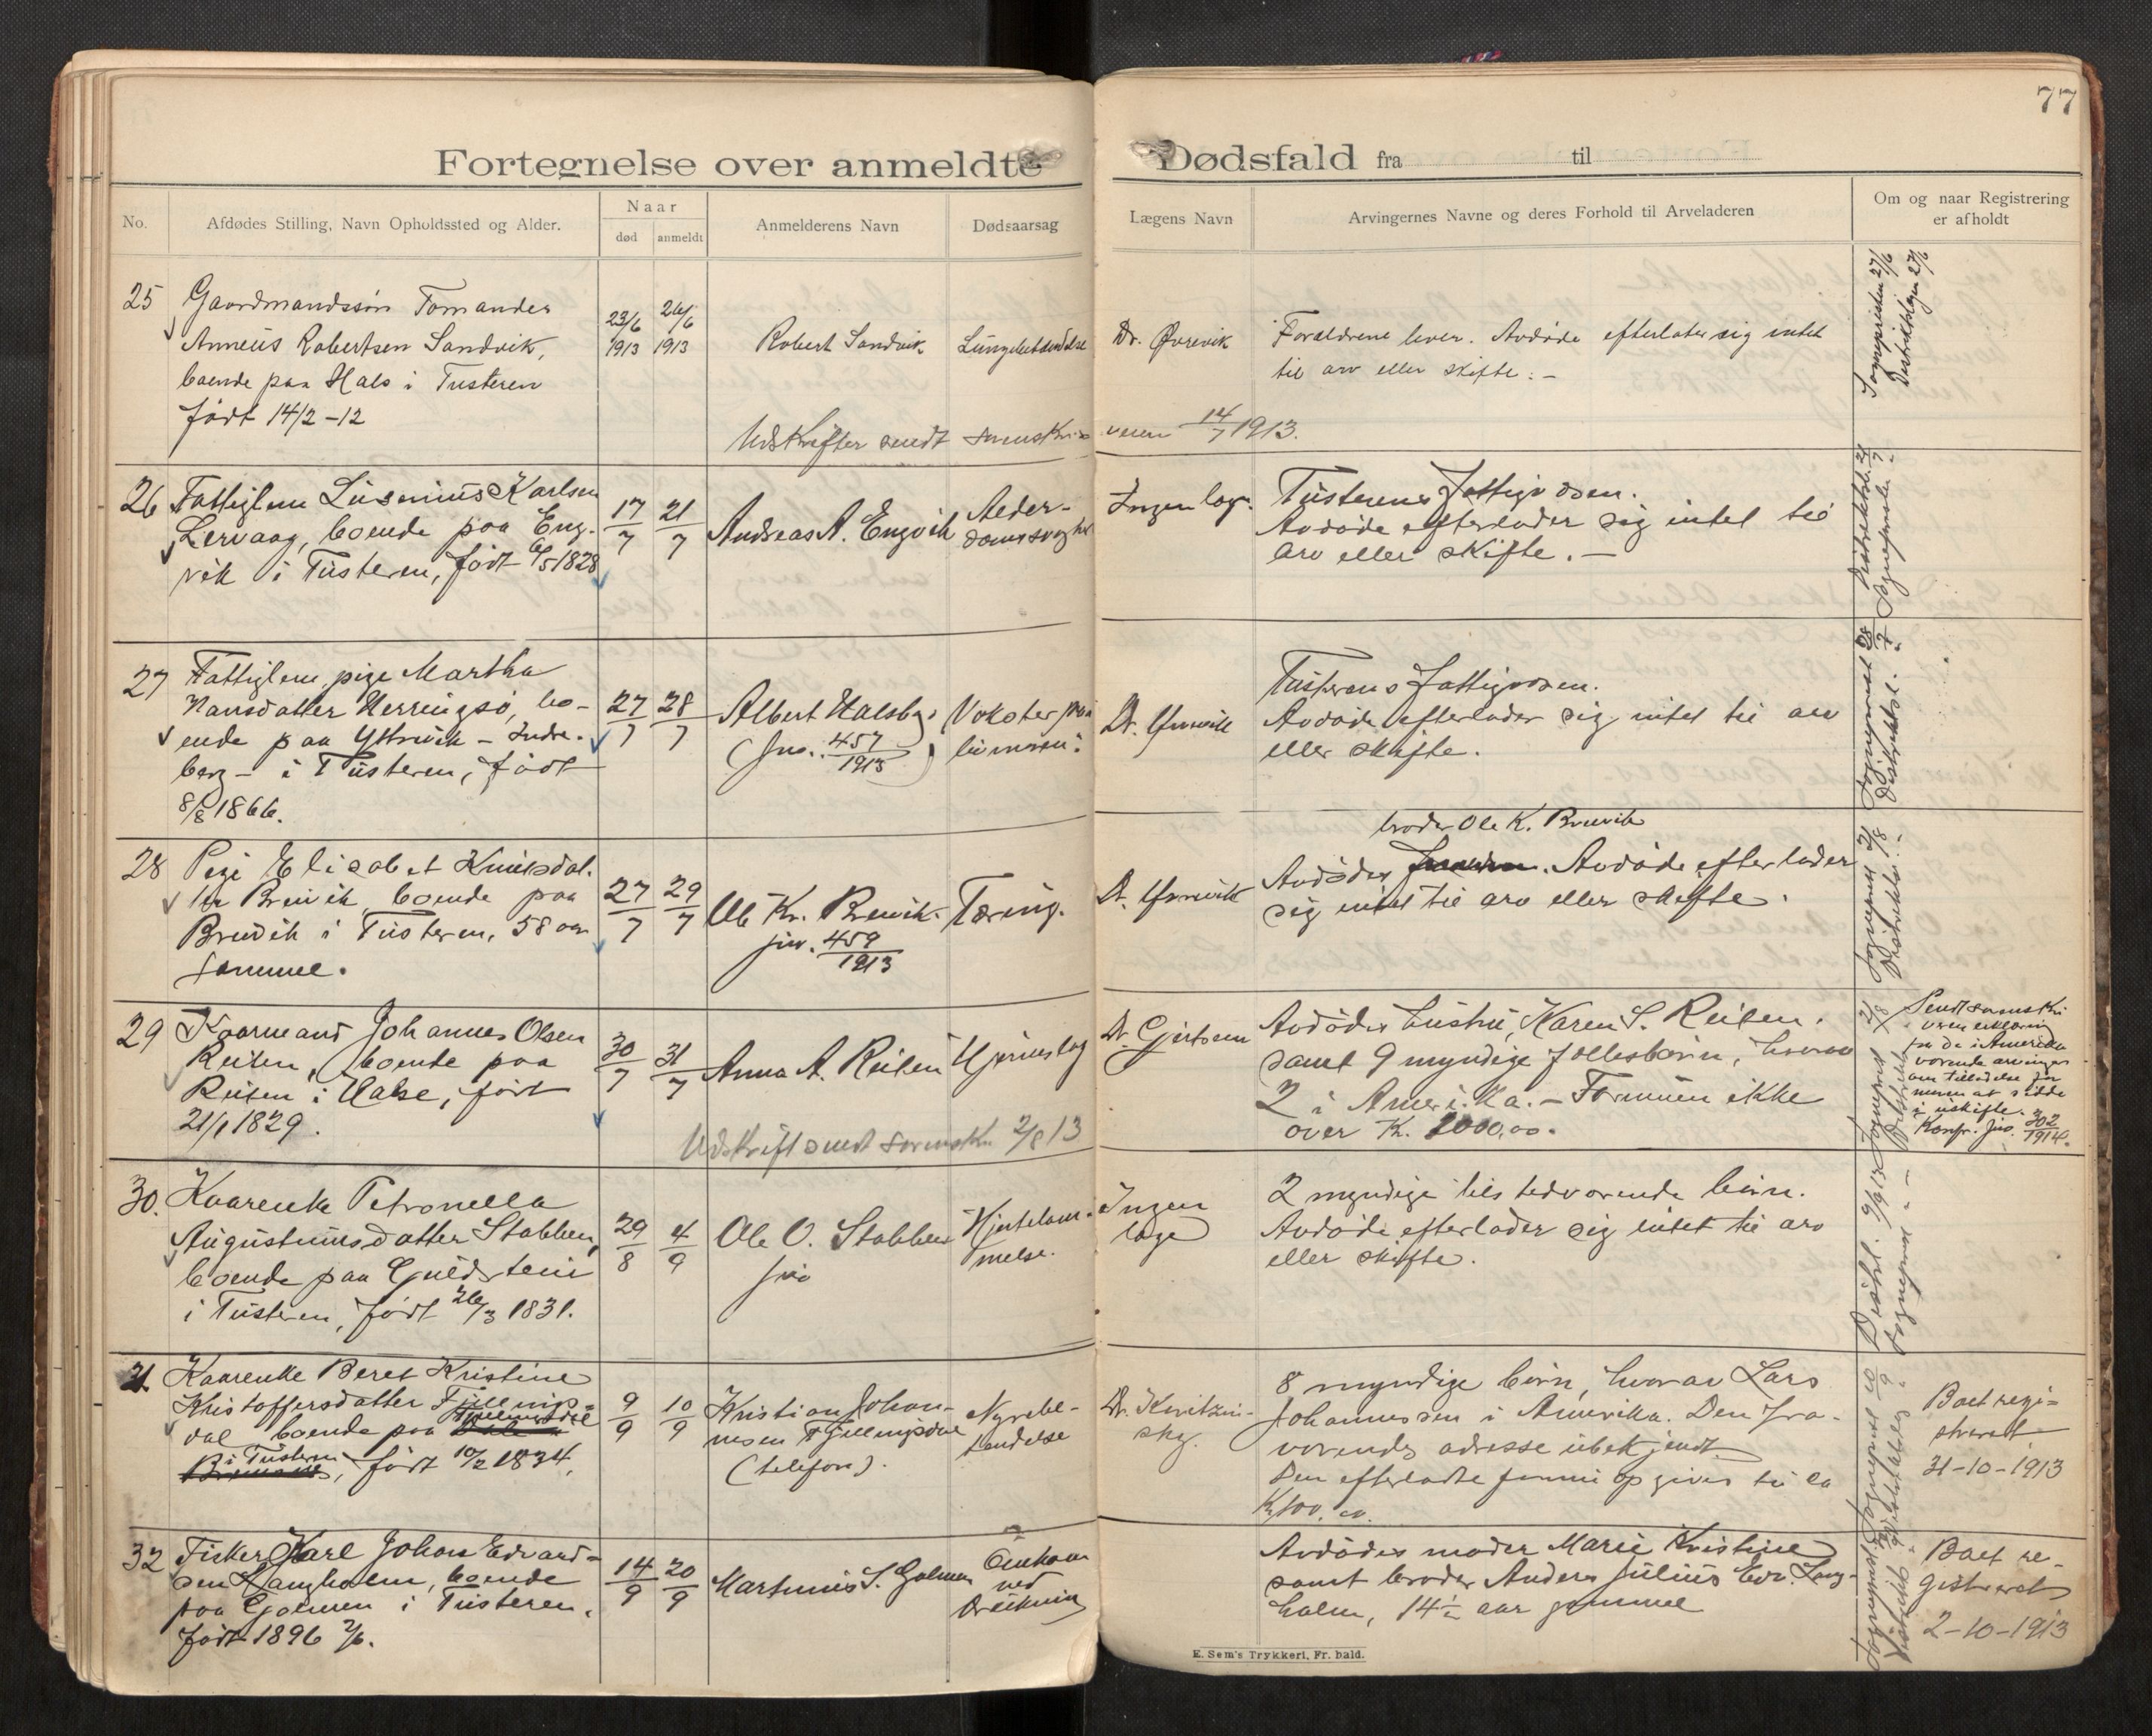 77
Fortegnelse over anmeldte Dødsfald fra til
No.
Afdødes Stilling, Navn Opholdssted og Alder.
Naar
død
anmeldt
Anmelderens Navn
Dødsaarsag
Lægens Navn
Arvingernes Navne og deres Forhold til Arveladeren
Om og naar Registrering
er afholdt
25
Gaardmandssøn Tomander
Anneus Robertsen Sandvik,
boende paa Hals i Tusteren
født 14/2-12
23/6
1913
24/6
1913
Robert Sandvik
Lungebetændelse
Dr. Øvrevik
Forældrene lever. Avdøde efterlater sig intet
til arv eller skifte. -
Sognepresten 27/6
Distriktslægen 27/6
Udskrifter sendt sorenskri-
veren 14/7 1913.
26
Fattiglem Karlsen
Lervaag, boende paa Eng-
vik i Tusteren, født 6/5 1828
17/7
21/7
Andreas A. Engvik
Alder-
domssvaghet
Ingen læge.
Tusterens Fattigvæsen.
Avdøde efterlader sig intet til
arv eller skifte. -
27
Fattiglem, pige Martha
Hansdatter Herringsø, bo-
ende paa Ytrevik - Indre-
berg - i Tusteren, født
8/8 1866.
27/7
28/7
Albert Halsbog
(Jno. 457/1913)
Dr. Øvrevik
Tusterens Fattigvæsen.
Avdøde efterlader sig intet til arv
eller skifte.
28
Pige Elisabet Knudsdat-
ter Brevik, boende paa
Brevik i Tusteren, 58 aar
gammel.
27/7
29/7
Ole Kr. Brevik.
jno. 459/1913
Tæring.
Dr. Øvrevik
broder Ole K. Brevik
Avdødes . Avdøde efterlader
sig intet til arv eller skifte.
29
Kaarmand Johannes Olsen
Reiten, boende paa
Reiten i Halse, født
21/1 1829.
30/7
31/7
Anna A. Reiten
Hjerneslag
Dr. Gjertsen
Avdødes hustru, Karen S. Reiten.
samt 9 myndige fællesbørn, hvorav
2 i Amerika. - Formuen ikke
over Kr. 2000,00.
Sendt sorenskri-
veren erklæring
fra de i Amerika
værende arvinger
om tilladelse for
moren at sidde
i uskifte.
Konfr. Jno. 302/1914.
Udskrift sendt sorenskr. 2/8 13
30.
Kaarenke Petronella
Augustinusdatter Stabben,
boende paa Guldstein
i Tusteren, født 26/3 1831.
29/8
4/9
Ole O. Stabben
Hjertelam-
melse.
Ingen
læge
2 myndige tilstedværende børn.
Avdøde efterlader sig intet til arv
eller skifte.
31
Kaarenke Beret Kristine
Kristoffersdatter Fjellings-
dal boende paa
i Tusteren, født 10/2 1834.
9/9
10/9
Kristian Johan-
nesen Fjellingsdal
(telefon).
Nyrebe-
tændelse
8 myndige børn, hvorav Lars
Johannessen i Amerika. Den fra-
værendes adresse ubekjendt.
Den efterladte formue opgives til ca
Kr 100,00.
Boet regi-
streret
31-10-1913
32
Fisker Karl Johan Edvard-
sen Langholm, boende
paa Golmen i Tusteren.
født 1896 2/6.
14/9
20/9
Martinus S. Golmen
Omkom
ved
Drukning
Avdødes moder Marie Kristine
samt broder Anders Julius Edv. Lang-
holm, 14½ aar gammel
Boet re-
gistreret
2-10-1913
E. Sem's Trykkeri, Fr. hald.